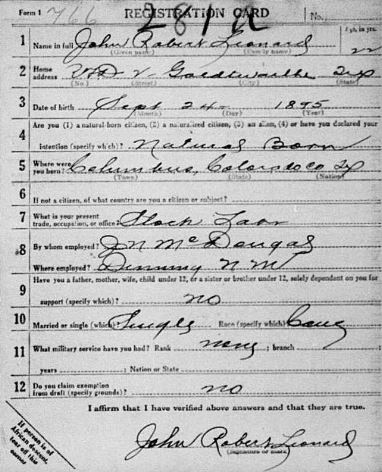 Form 1 766 REGISTRATION CARD No.
1 Name in full John Robert Leonard Age, in yrs.
(Given name) (Family name)
2 Home address Goldthwaite Tex
(No.) (Street) (City) (State)
3 Date of birth Sept 24 1895
(Month) (Day) (Year)
4 Are you (1) a natural-born citizen, (2) a naturalized citizen, (3) an alien, (4) or have you declared your
intention (specify which)? Natural Born
5 Where were you born? Columbus, Colorado Co Tex
(Town) (State) (Nation)
6 If not a citizen, of what country are you a citizen or subject?
7 What is your present trade, occupation, or office? Stock
8 By whom employed? J N McDougal
Where employed? N M
9 Have you a father, mother, wife, child under 12, or a sister or brother under 12, solely dependent on you for
support (specify which)? no
10 Married or single (which)? Single Race (specify which)? Cauc
11 What military service have you had? Rank none ; branch
years ; Nation or State
12 Do you claim exemption from draft (specify grounds)? no
I affirm that I have verified above answers and that they are true.
John Robert Leonard
(Signature or mark)
If person is of
African descent,
tear off this
corner